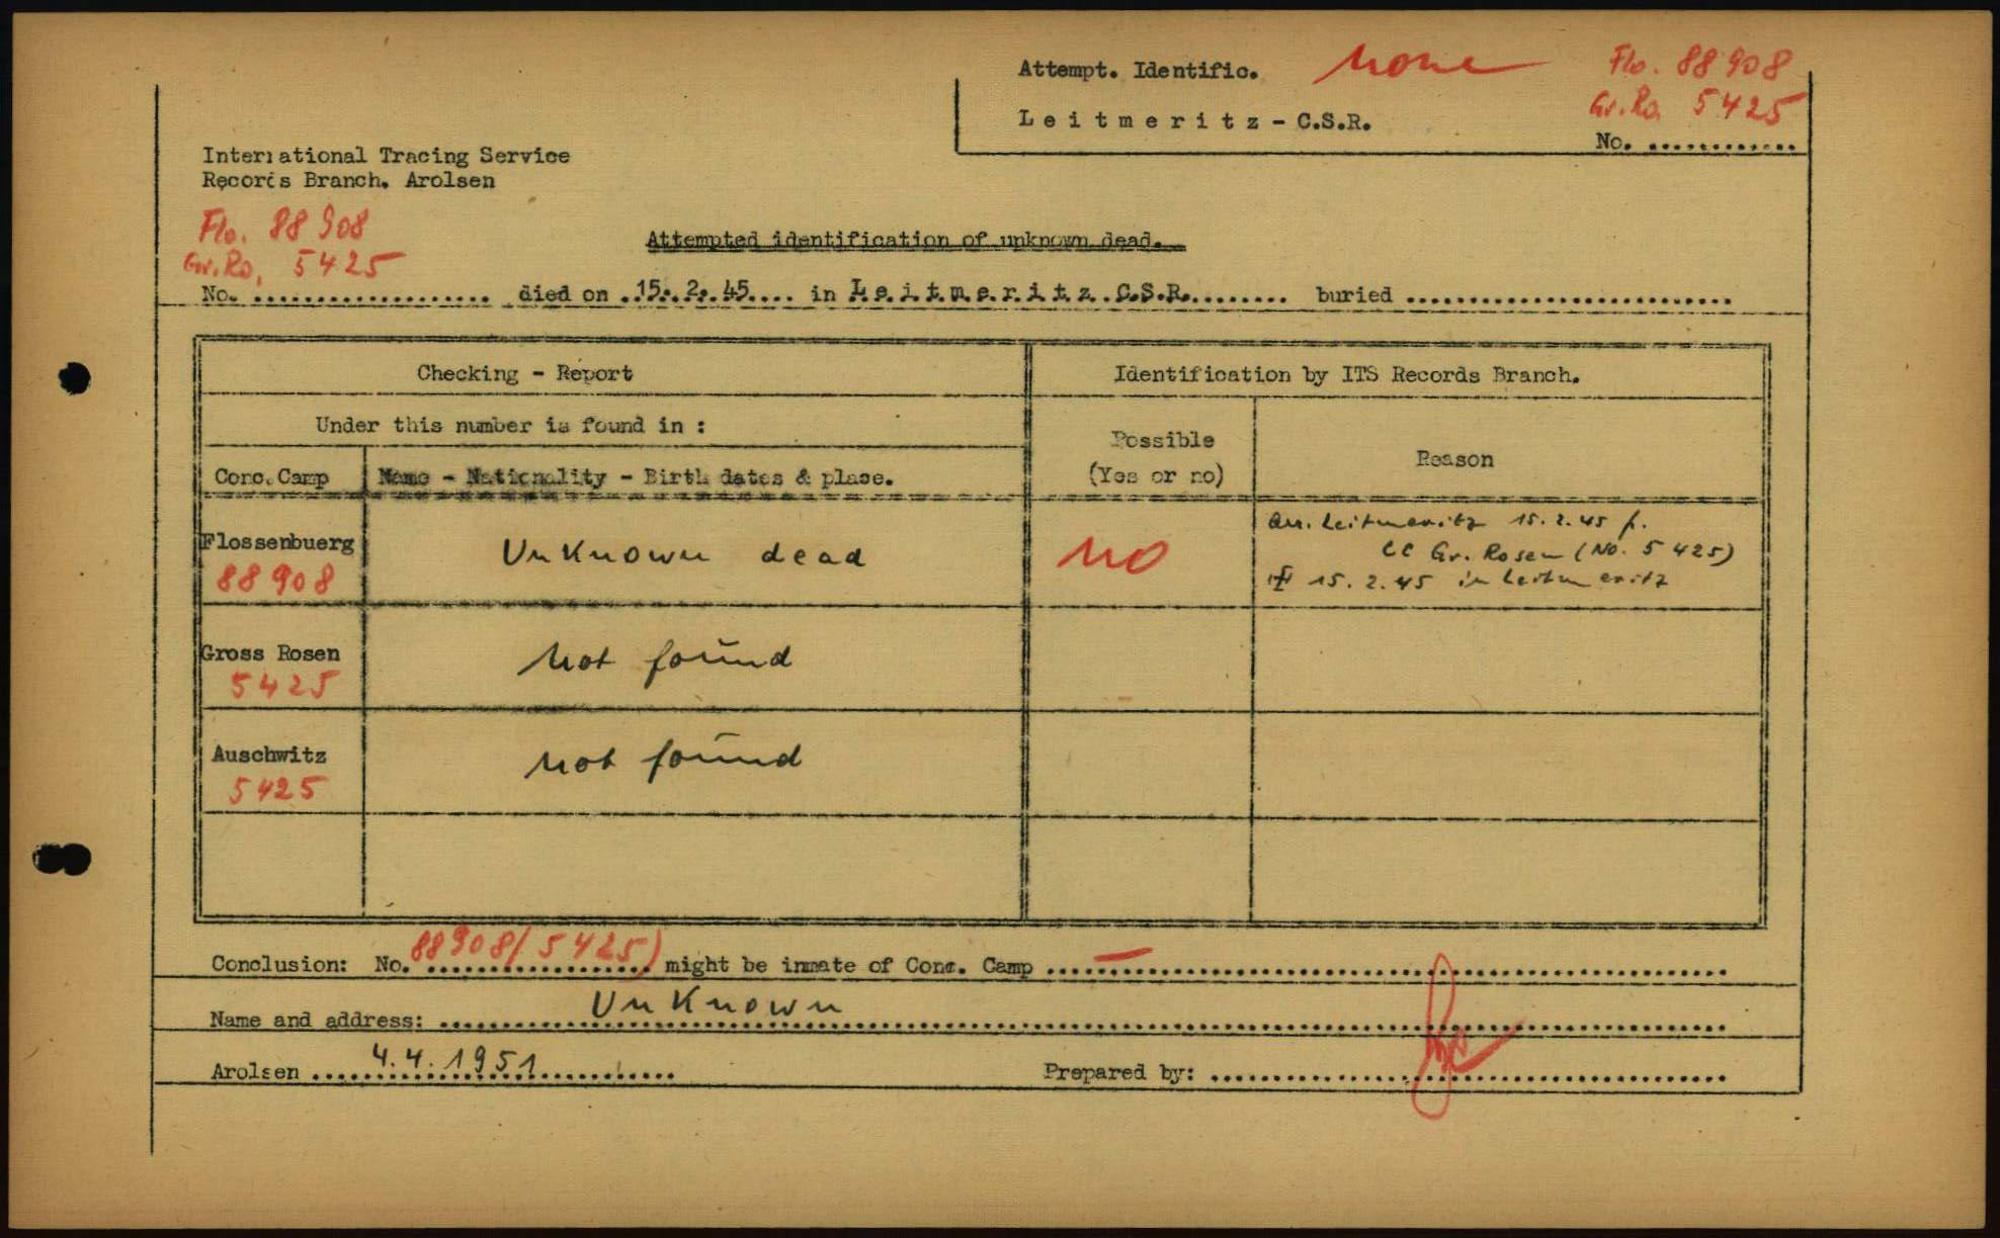 Attempt. Identific. none Flo. 88908
Gr.Ro. 5425
Leitmeritz - C.S.R.
No. ............
International Tracing Service
Records Branch. Arolsen
Flo. 88908
Gr.Ro. 5425
Attempted identification of unknown dead.
No. ................... died on ..15..2..45.... in Leitmeritz C.S.R......... buried ..........................
Checking - Report
Identification by ITS Records Branch.
Under this number is found in :
Possible
(Yes or no)
Reason
Conc. Camp
Name - Nationality - Birth dates & place.
Flossenbuerg
88908
Unknown dead
no
arr. Leitmeritz 15.2.45 f.
CC Gr. Rosen (No. 5425)
15.2.45 in Leitmeritz
Gross Rosen
5425
not found
Auschwitz
5425
not found
Conclusion: No. 88908(5425) might be inmate of Conc. Camp —
Name and address: Unknown
Arolsen 4.4.1951
Prepared by: